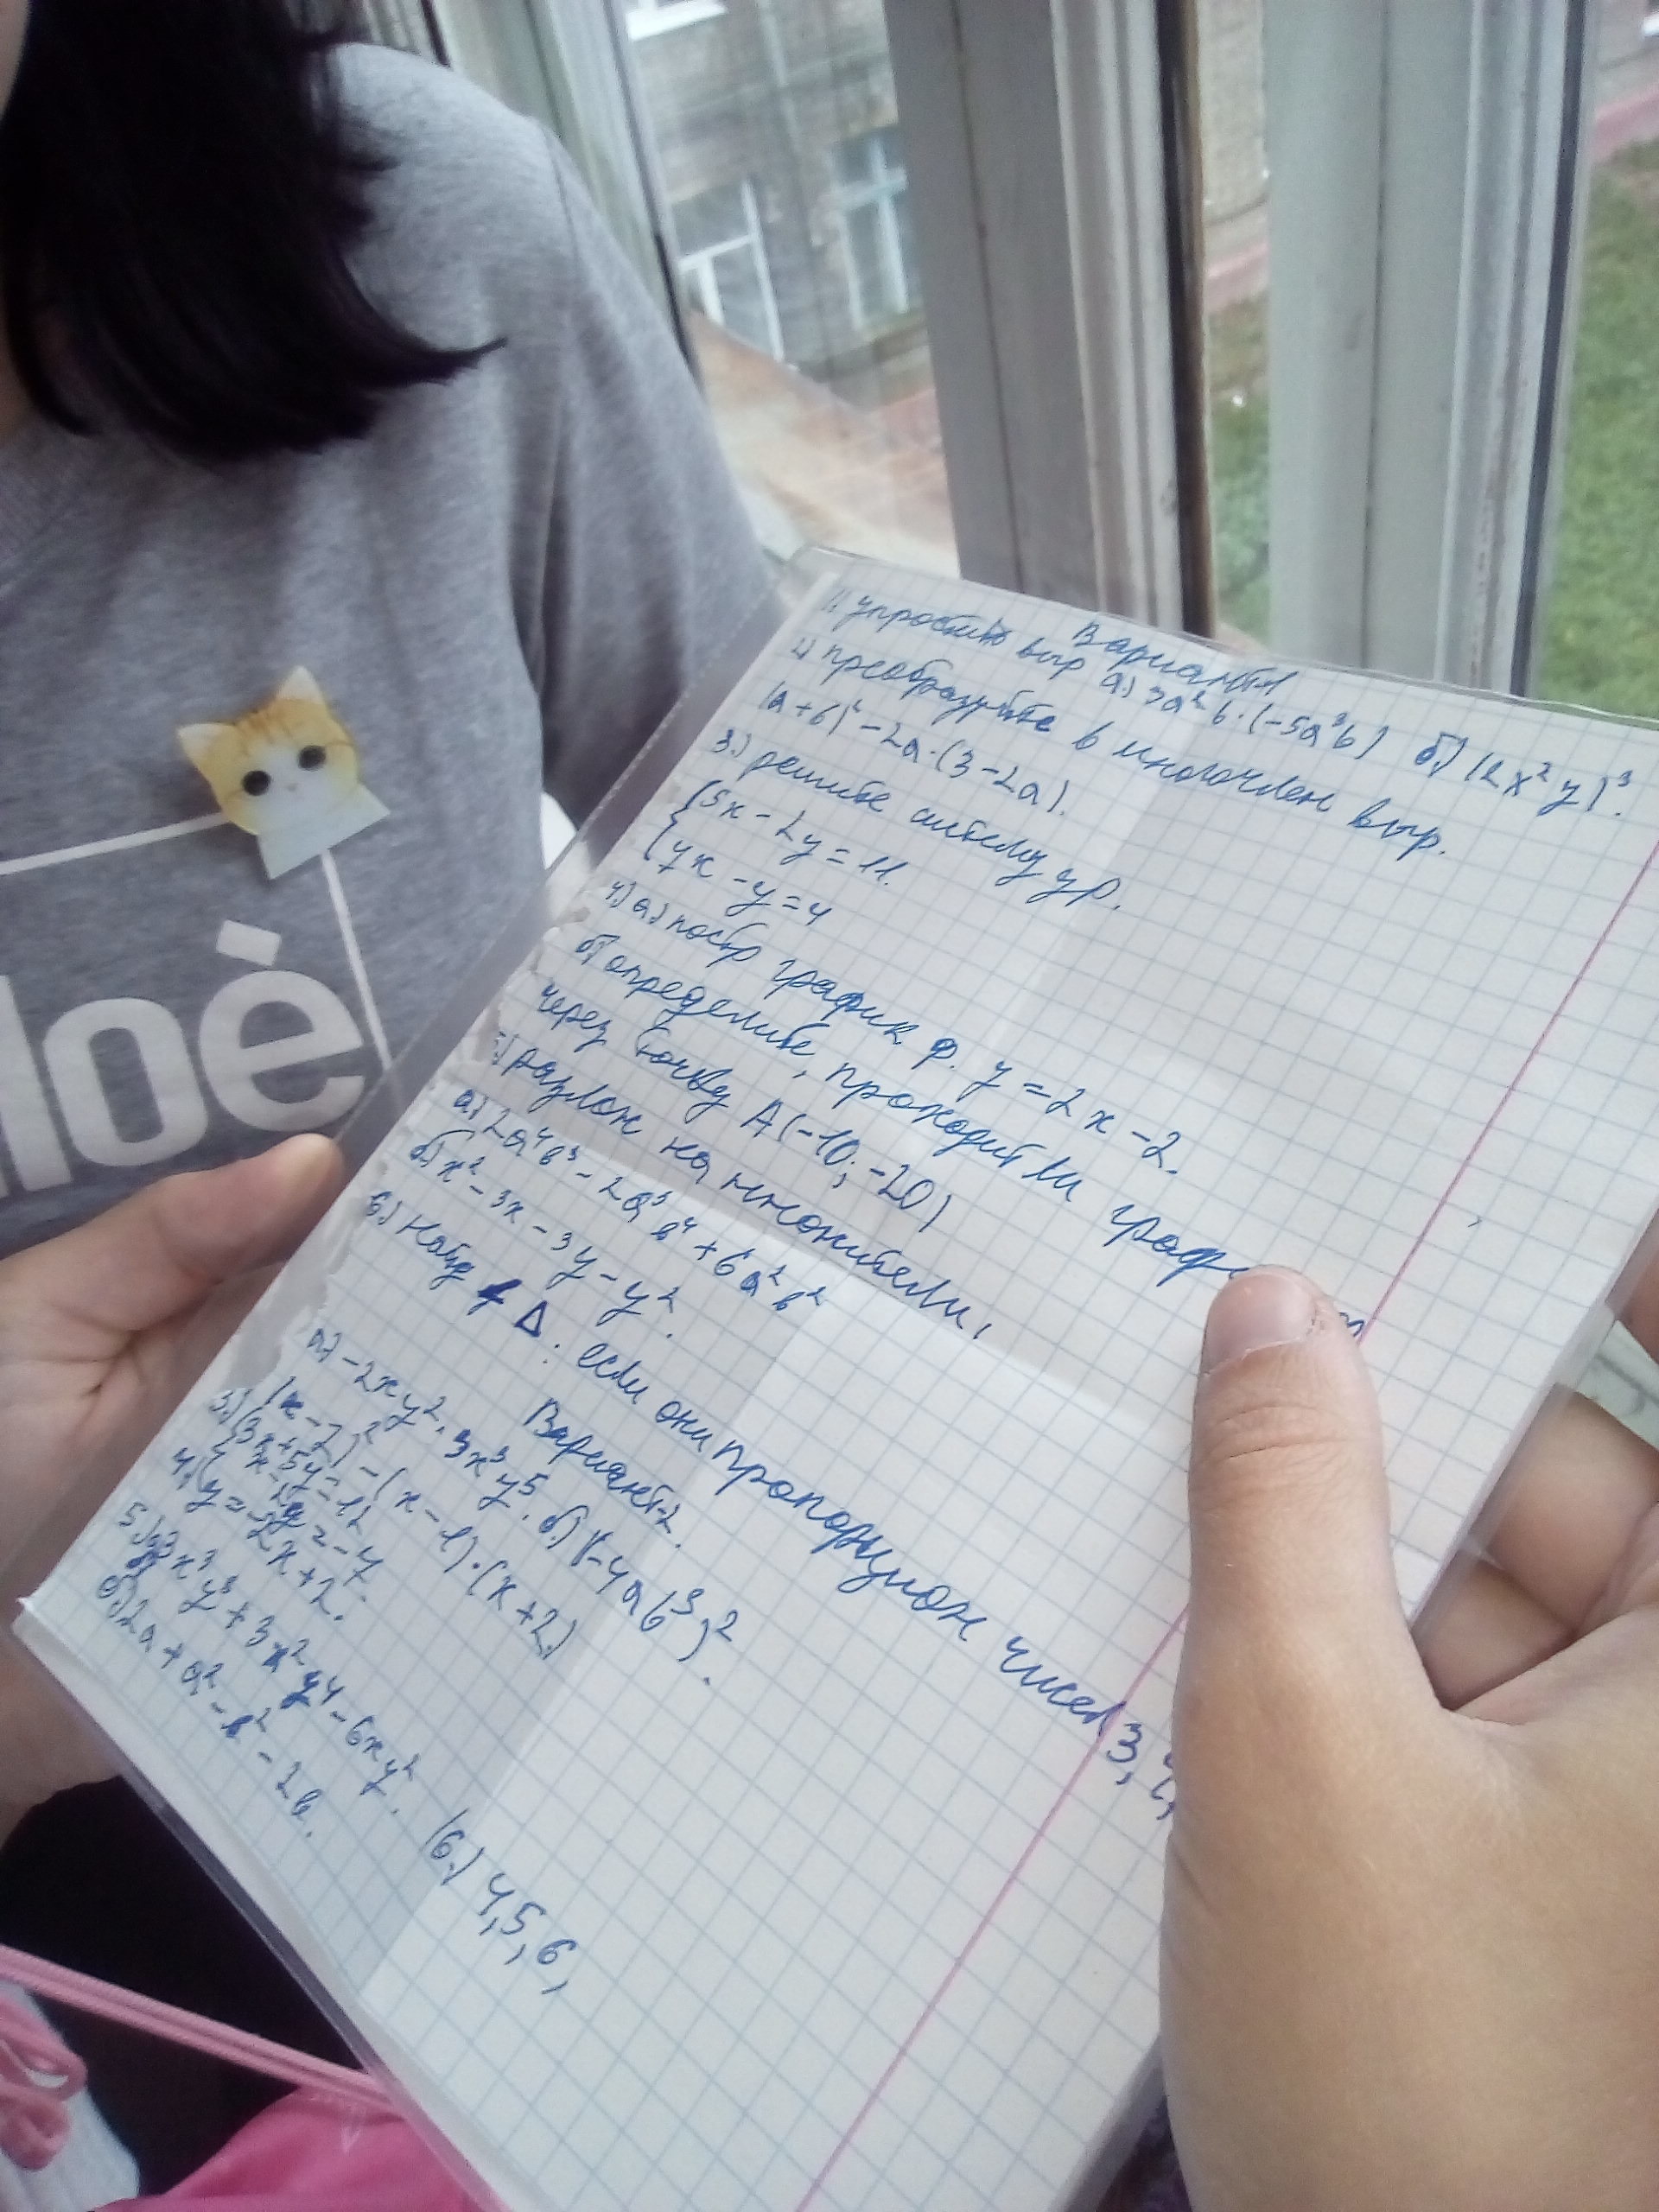 loè
Вариант 1
1. упростить выр а) 3a²b·(-5a³b) б) (2x²y)³.
2) преобразуйте в многочлен выр.
(a+6)² - 2a·(3-2a).
3.) решите систему ур.
{5x - 2y = 11.
{4x - y = 4
4.) а) постр график ф. y = 2x - 2.
б) определите, проходит ли граф
через точку A(-10; -20)
5) разлож на множители,
а) 2a⁴b³ - 2a³b⁴ + 6a²b²
б) x² - 3x - 3y - y².
6.) найд Δ: если они пропорцион чисел 3, 4,
Вариант-2.
а) -2xy²·3x³y⁵. б) (-4ab³)².
(x-7)² - (x-1)·(x+2)
3.) {3x+5y=12
{x-2y=-7
4.) y = -2x+2.
5.) x³y³ + 3x²y⁴ - 6xy².
б) 2a + a² - b² - 2b.
(6.) 4, 5, 6,